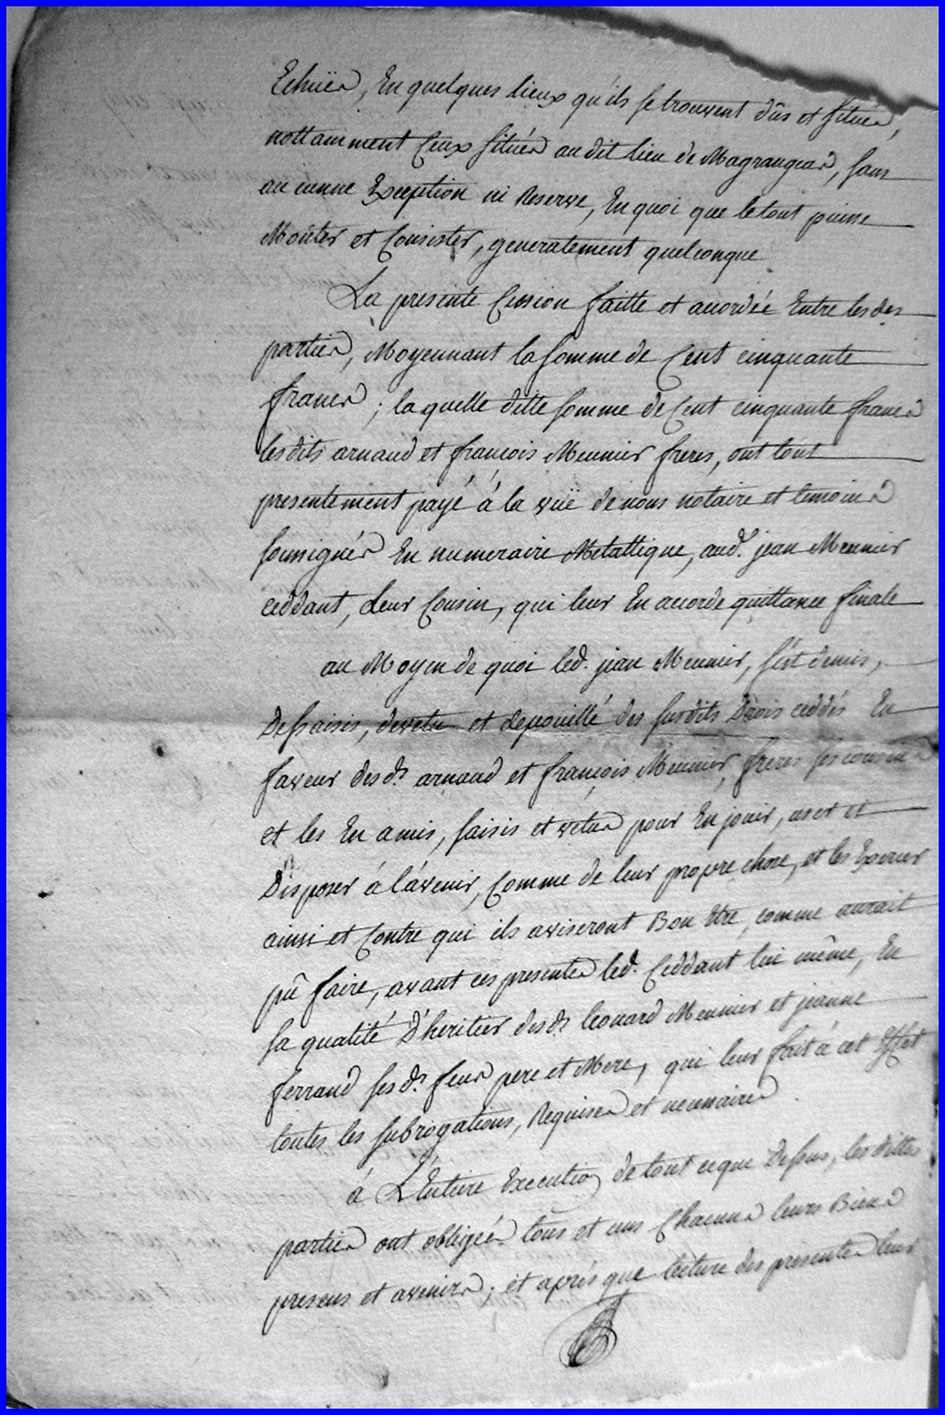 Echües, En quelques lieux qu'ils se trouvent dûs et situés,
nottamment Ceux situés au dit lieu de Magrangeas, sans
aucunne Exception ni Reserve, En quoi que le tout puisse
Monter et Consister, generalement quelconque
La presente Cession faitte et accordée Entre les des
parties, Moyennant la somme de Cent cinquante
francs ; la quelle ditte somme de Cent cinquante francs
les dits arnaud et françois Meunier freres, ont tout
presentement payé à la vüe de nous notaire et temoins
soussignés En numeraire Metallique, aud. jean Meunier
ceddant, Leur Cousin, qui leur En accorde quittance finale
au Moyen de quoi led. jean Meunier, s'est demis,
Dessaisis, devetu et depouillé des susdits Drois ceddés En
faveur desds arnaud et françois Meunier, freres ses cousins
et les En a mis, saisis et vetus pour En jouir, user et
Disposer à l'avenir, Comme de leur propre chose, et les Exercer
ainsi et Contre qui ils aviseront Bon Etre, comme aurait
pû faire, avant ces presentes led. Ceddant lui même, En
sa qualité D'heritier desds leonard Meunier et jeanne
ferrand sesds feus pere et Mere, qui leur fait à cet Effet
toutes les subrogations, Requises et necessaires
à L'Entiere Execution de tout ceque Dessus, les dittes
parties ont obligées tous et uns Chacuns leurs Biens
presens et avenirs ; et après que lecture des presentes leur